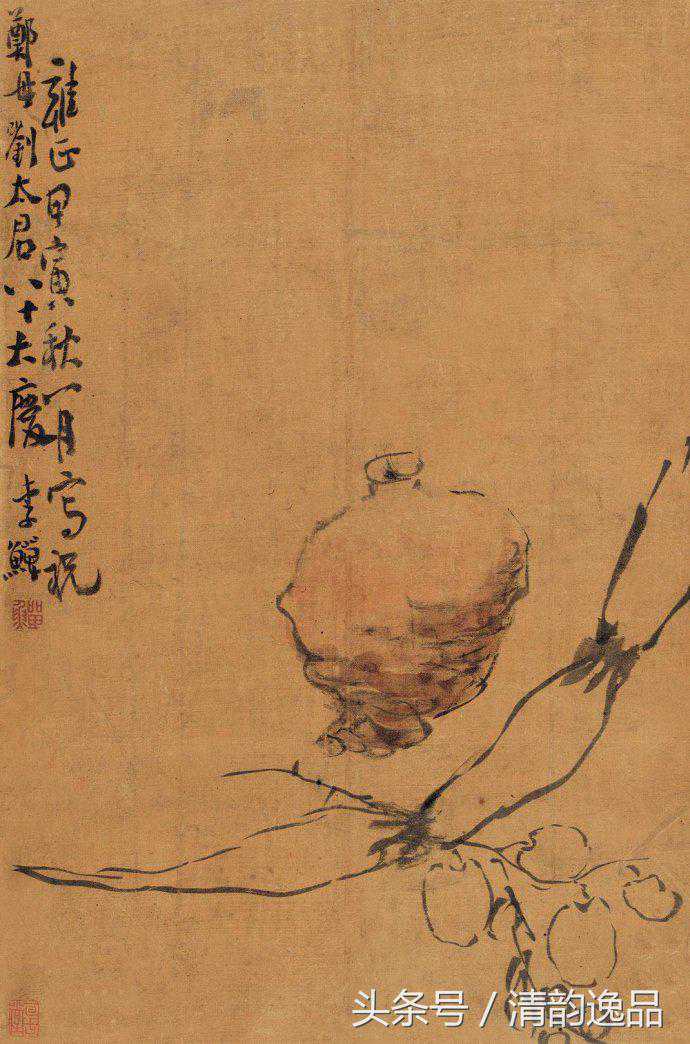 雍正甲寅秋八月写祝
鄭母劉太君八十大慶 李鱓
头条号 / 清韵逸品